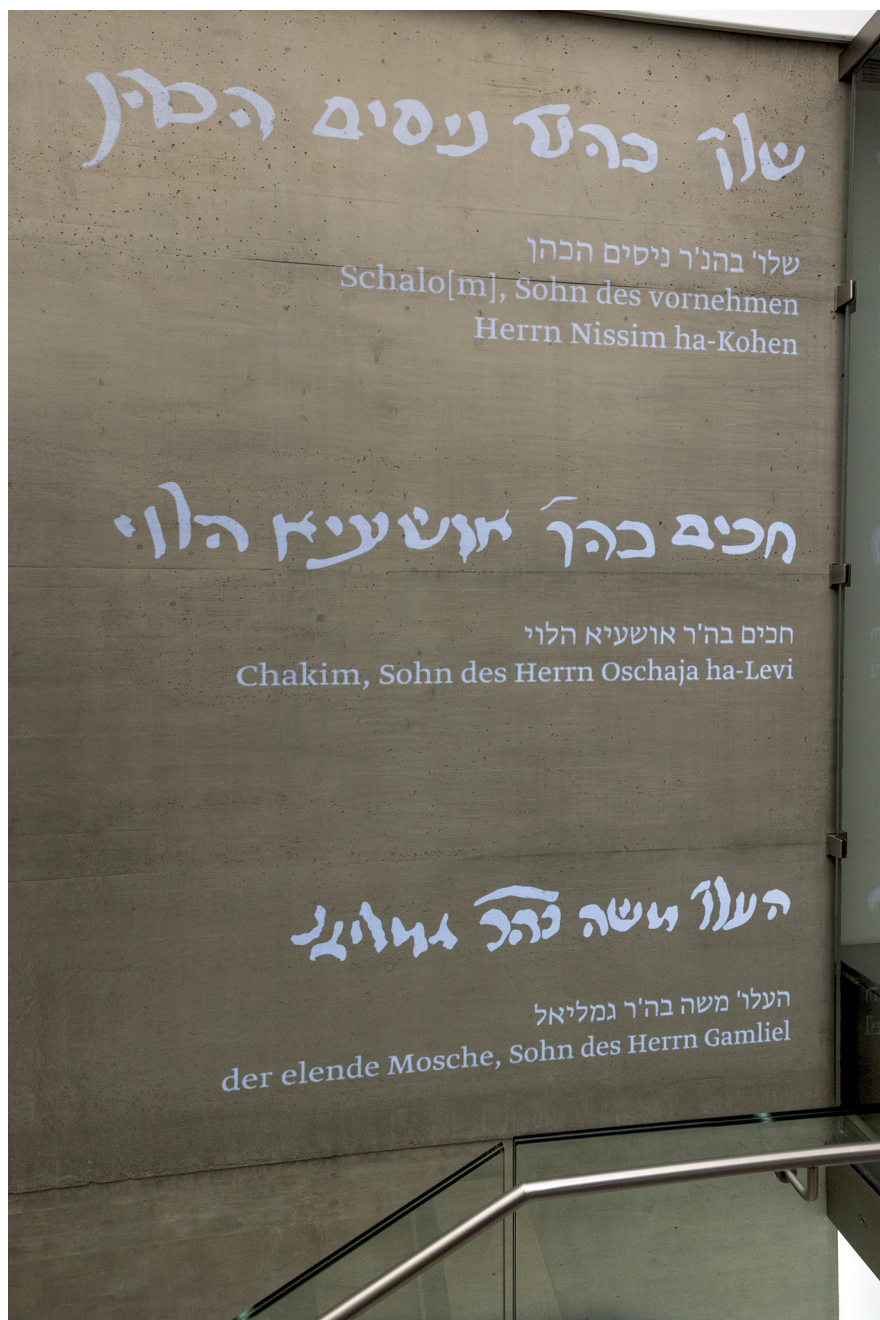 שלו' בהנ'ר ניסים הכהן
שלו' בהנ'ר ניסים הכהן
Schalo[m], Sohn des vornehmen
Herrn Nissim ha-Kohen
חכים בה'ר אושעיא הלוי
חכים בה'ר אושעיא הלוי
Chakim, Sohn des Herrn Oschaja ha-Levi
העלו' משה בה'ר גמליאל
העלו' משה בה'ר גמליאל
der elende Mosche, Sohn des Herrn Gamliel